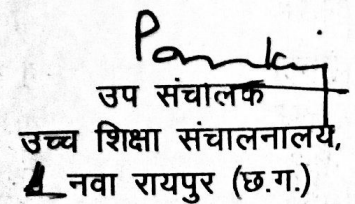 उप संचालक
उच्च शिक्षा संचालनालय,
नवा रायपुर (छ.ग.)